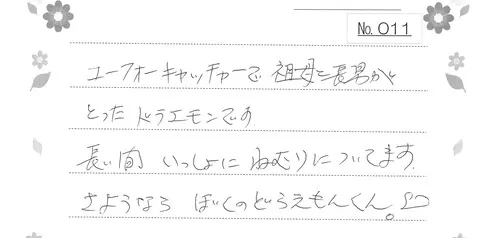 No. 011
ユーフォーキャッチャーで 祖母と長男が
とった ドラエモンです
長い間 いっしょに ねむりについてます.
さようなら ぼくのどらえもんくん。